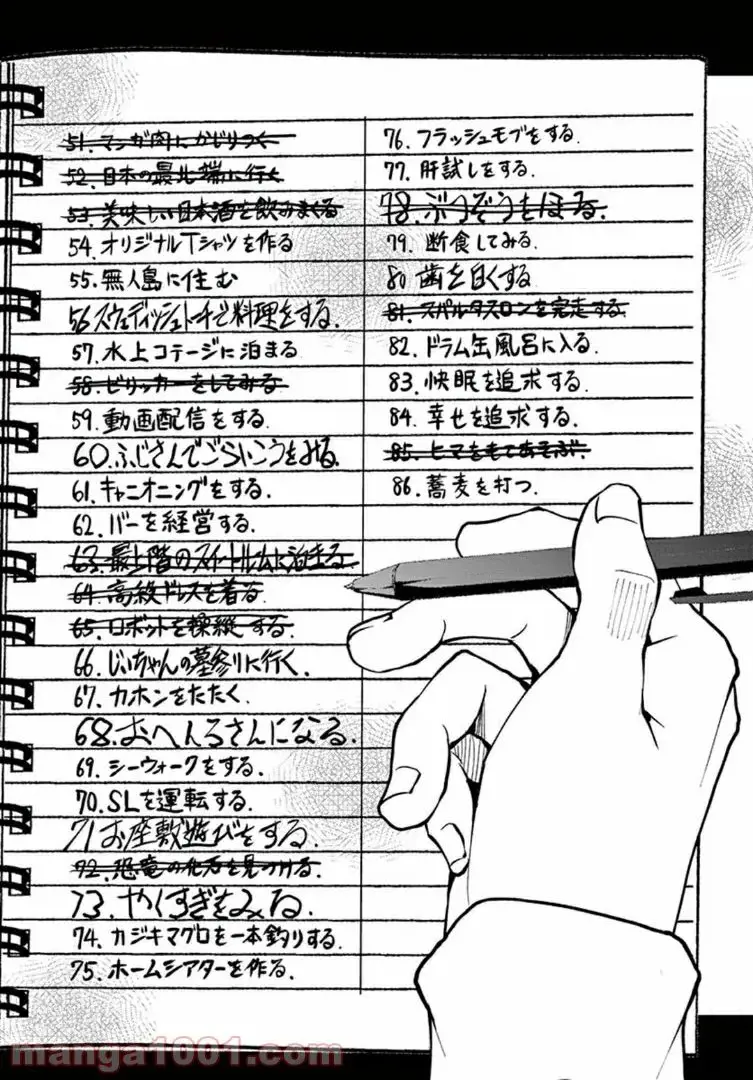 51. マンガ肉にかじりつく
52. 日本の最北端に行く
53. 美味しい日本酒を飲みまくる
54. オリジナルTシャツを作る
55. 無人島に住む
56 スウェディッシュトーチで料理をする.
57. 水上コテージに泊まる
58. ヒッチハイカーをしてみる
59. 動画配信をする.
60. ふじさんでごらいこうをみる.
61. キャニオニングをする.
62. バーを経営する.
63. 最上階のスイートルームに泊まる
64. 高級ドレスを着る
65. ロボットを操縦する.
66. じいちゃんの墓参りに行く.
67. カホンをたたく.
68. おへんろさんになる.
69. シーウォークをする.
70. SLを運転する.
71 お座敷遊びをする.
72. 恐竜の化石を見つける.
73. やくすぎをみる.
74. カジキマグロを一本釣りする.
75. ホームシアターを作る.
76. フラッシュモブをする.
77. 肝試しをする.
78. ぶつぞうをほる.
79. 断食してみる.
80 歯を白くする
81. スパルタスロンを完走する.
82. ドラム缶風呂に入る.
83. 快眠を追求する.
84. 幸せを追求する.
85. ヒマをもてあそぶ.
86. 蕎麦を打つ.
manga1001.com